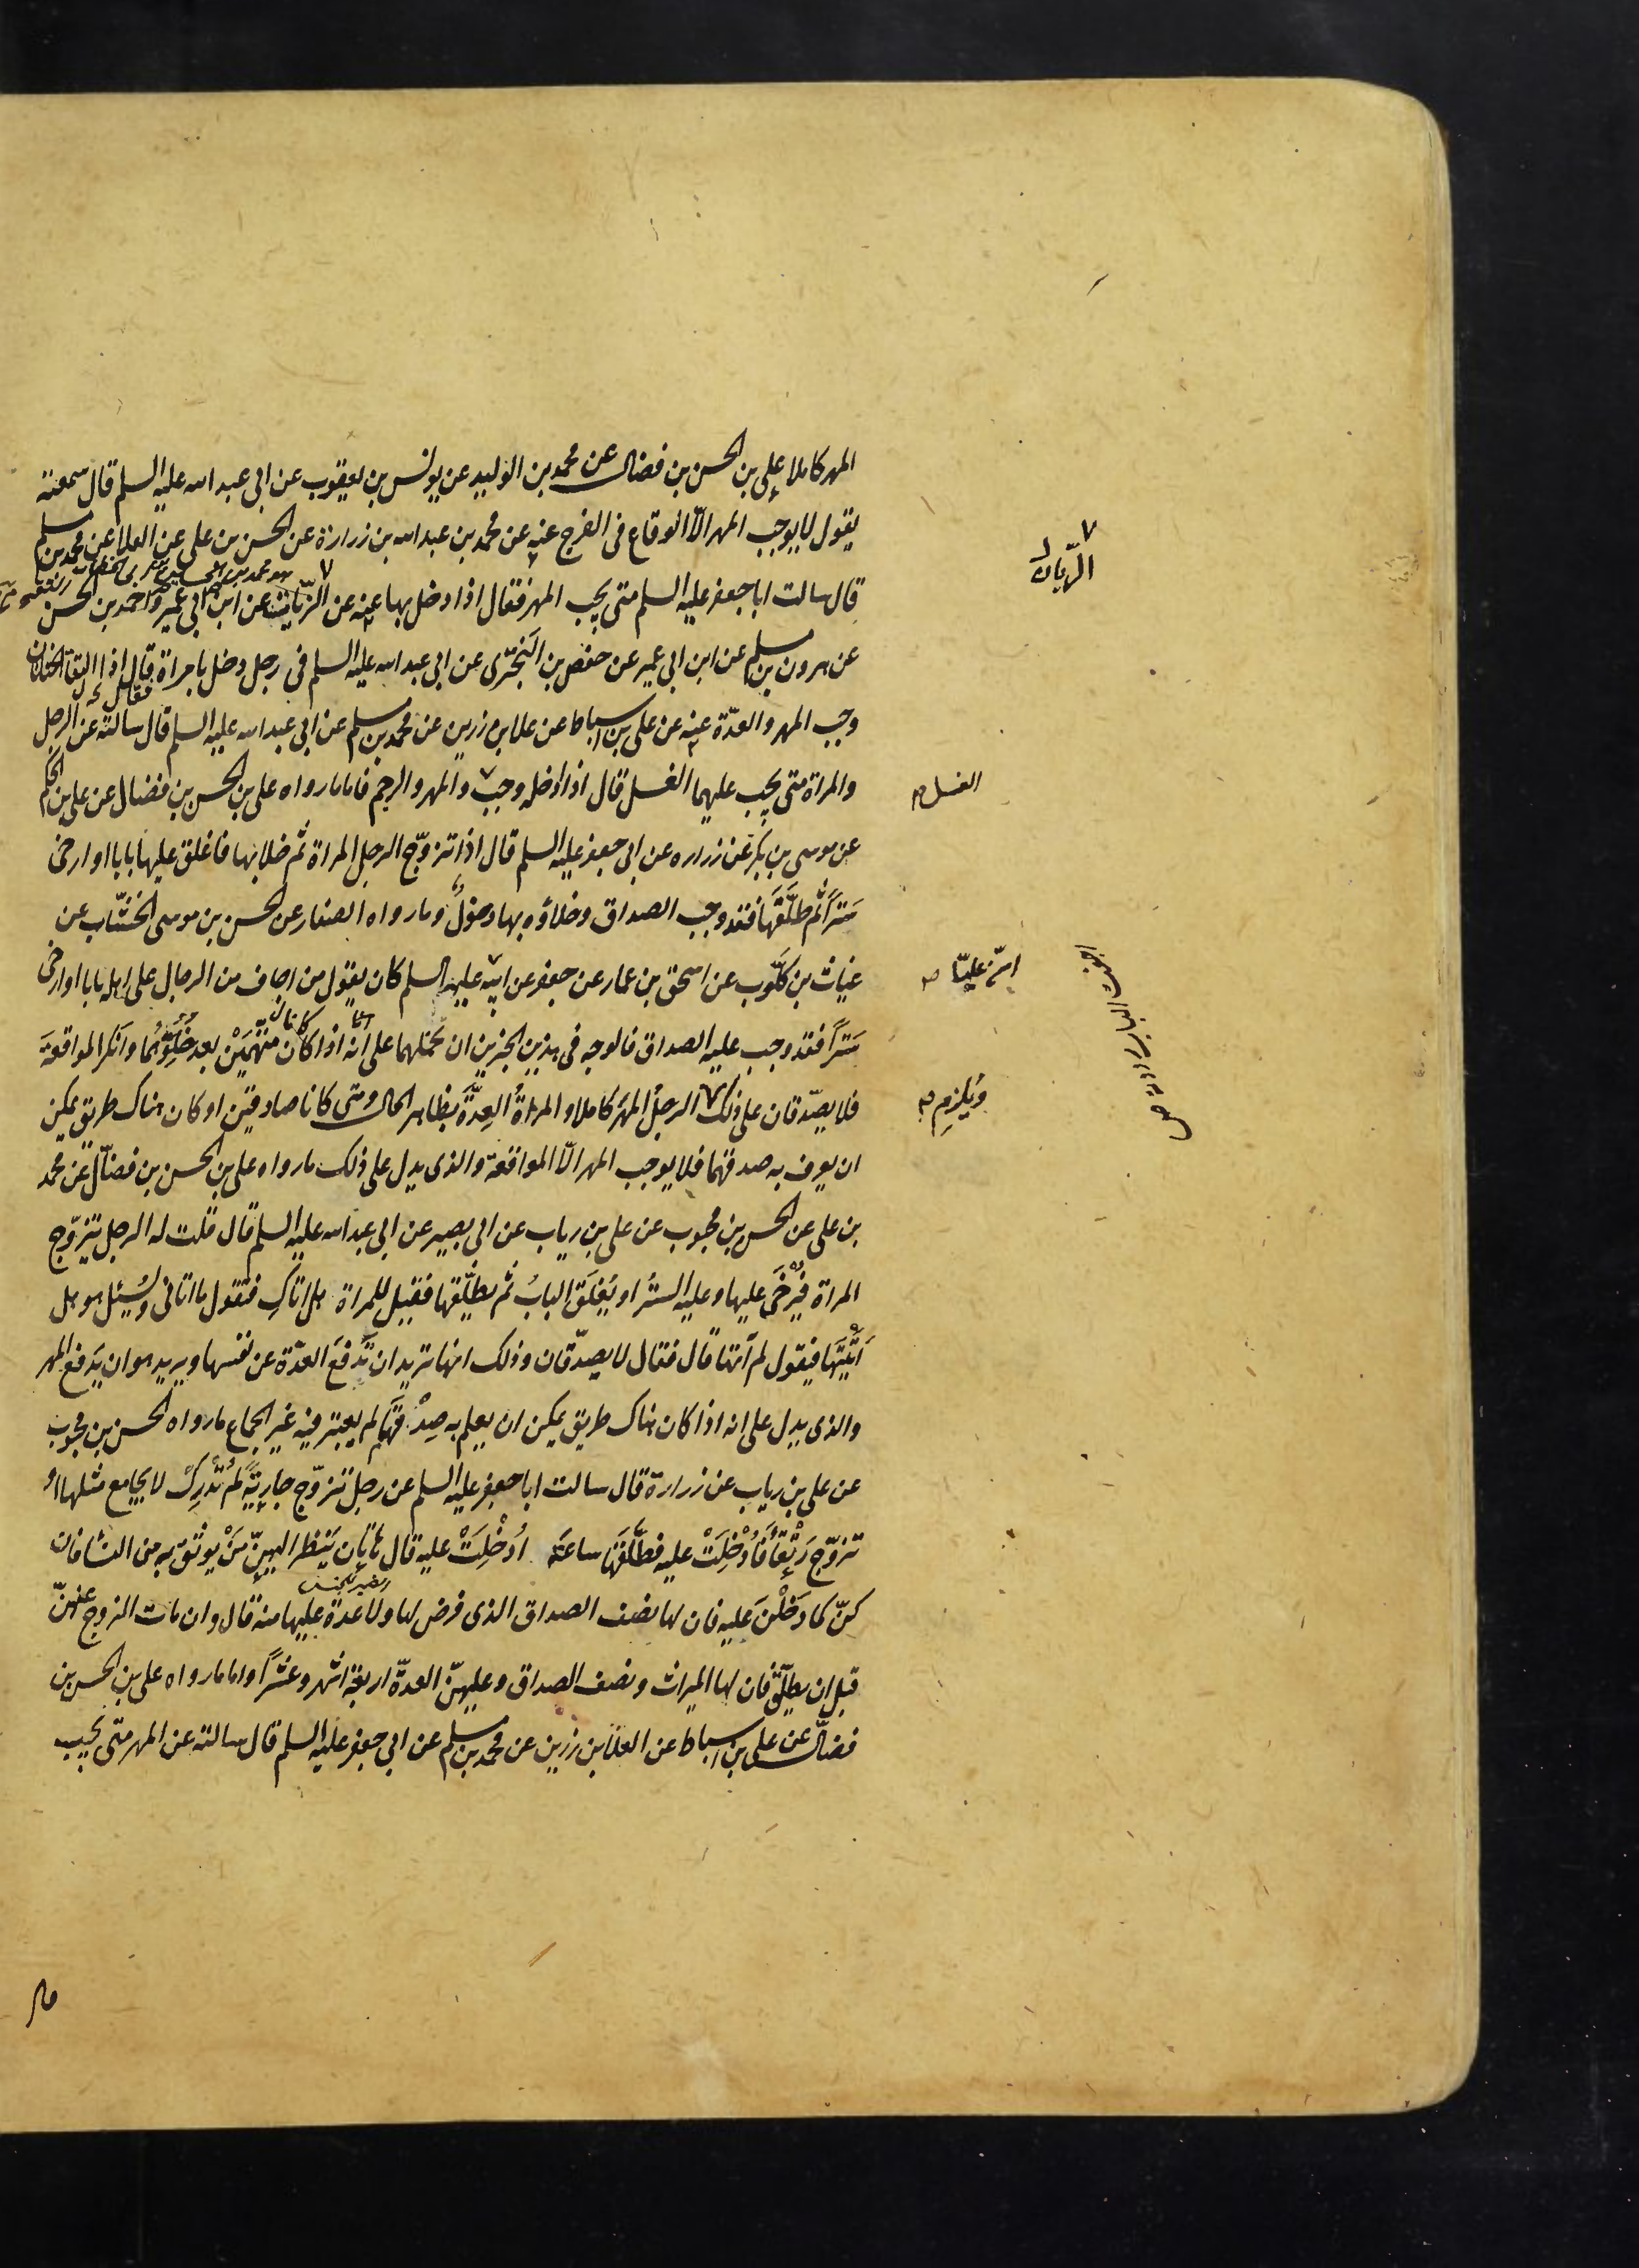 المهر كاملا على بن الحسن بن فضال عن محمد بن الوليد عن يونس بن يعقوب عن ابى عبد الله عليه السلم قال سمعته
يقول لا يوجب المهر الّا الوقاع فى الفرج عنه عن محمد بن عبد الله بن زرارة عن الحسن بن على عن العلا عن محمد بن مسلم
قال سالت ابا جعفر عليه السلم متى يجب المهر فقال اذا دخل بها عنه عن الزّيات عن ابن ابى عمير واحمد بن الحسن
عن هرون بن مسلم عن ابن ابى عمير عن حفص بن البَخترى عن ابى عبد الله عليه السلم فى رجل دخل بامراة قال اذا التقا الختانان
وجب المهر والعدّة عنه عن على بن اسباط عن علا بن رزين عن محمد بن مسلم عن ابى عبد الله عليه السلم قال سالته عن الرجل
والمراة متى يجب عليهما الغسل قال اذا ادخله وجب والمهر والرجم فاما ما رواه على بن الحسن بن فضال عن على بن الحكم
عن موسى بن بكر عن زراره عن ابى جعفر عليه السلم قال اذا تزوّج الرجل المراة ثم خلا بها فاغلق عليها بابا او ارخى
سَتراً ثم طلّقَها فقد وجب الصداق وخلاؤه بها دخولٌ وما رواه الصفار عن الحسن بن موسى الخشّاب عن
غياث بن كلّوب عن اسحق بن عمار عن جعفر عن ابيه عليه السلم كان يقول من اجاف من الرجال على اهله بابا او ارخى
سَتراً فقد وجب عليه الصداق فالوجه فى هذين الخبرين ان نحملهما على انه اذا كان متّهمَيْن بعد خُلوّهُما وانكرا المواقعة
فلا يصدّقان على ذلك الرجلُ المهرَ كاملا والمراةُ العِدَّةَ بظاهر الحال ومتى كانا صادقين او كان هناك طريق يمكن
ان يعرف به صدقهما فلا يوجب المهر الّا المواقعة والذى يدل على ذلك ما رواه على بن الحسن بن فضّال عن محمد
بن على عن الحسن بن محبوب عن على بن رياب عن ابى بصير عن ابى عبد الله عليه السلم قال قلت له الرجل يتزوّج
المراة فيُرْخَى عليها وعليه السترُ او يُغلَق البابُ ثم يطلّقها فقيل للمراة هل اتاكِ فتقول ما اتانى ويُسئل هو هل
اَتَيْتَها فيقول لم آتها قال فقال لا يصدّقان وذلك انها تريد ان تَدفَع العدّة عن نفسها ويريد هو ان يَدفع المهر
والذى يدل على انه اذا كان هناك طريق يمكن ان يعلم به صِدْقهَما لم يعتبر فيه غير الجماع ما رواه الحسن بن محبوب
عن على بن رياب عن زرارة قال سالت ابا جعفر عليه السلم عن رجل تزوّج جارِيَةً لَم تُدْرِكْ لا يجامع مثلها اوْ
تزوّج رَتْقآءَ فَاُدْخِلَتْ عليه فطلَّقهَا ساعَة اُدْخِلَتْ عليه قال هاتان يَنظر اليهِنّ مَنْ يوثَق به من النسا فان
كنّ كما دَخَلْنَ عليه فان لها نصف الصداق الذى فرض لها ولا عدة عليها منه قال وان مات الزوج عنهنّ
قبل ان يطلّق فان لها الميراث ونصف الصداق وعليهنّ العدّة اربعة اشهر وعَشْراً واما ما رواه على بن الحسن بن
فضّال عن على بن اسباط عن العلا بن رزين عن محمد بن مسلم عن ابى جعفر عليه السلم قال سالته عن المهر متى يجب
الغسل
ويُلزم